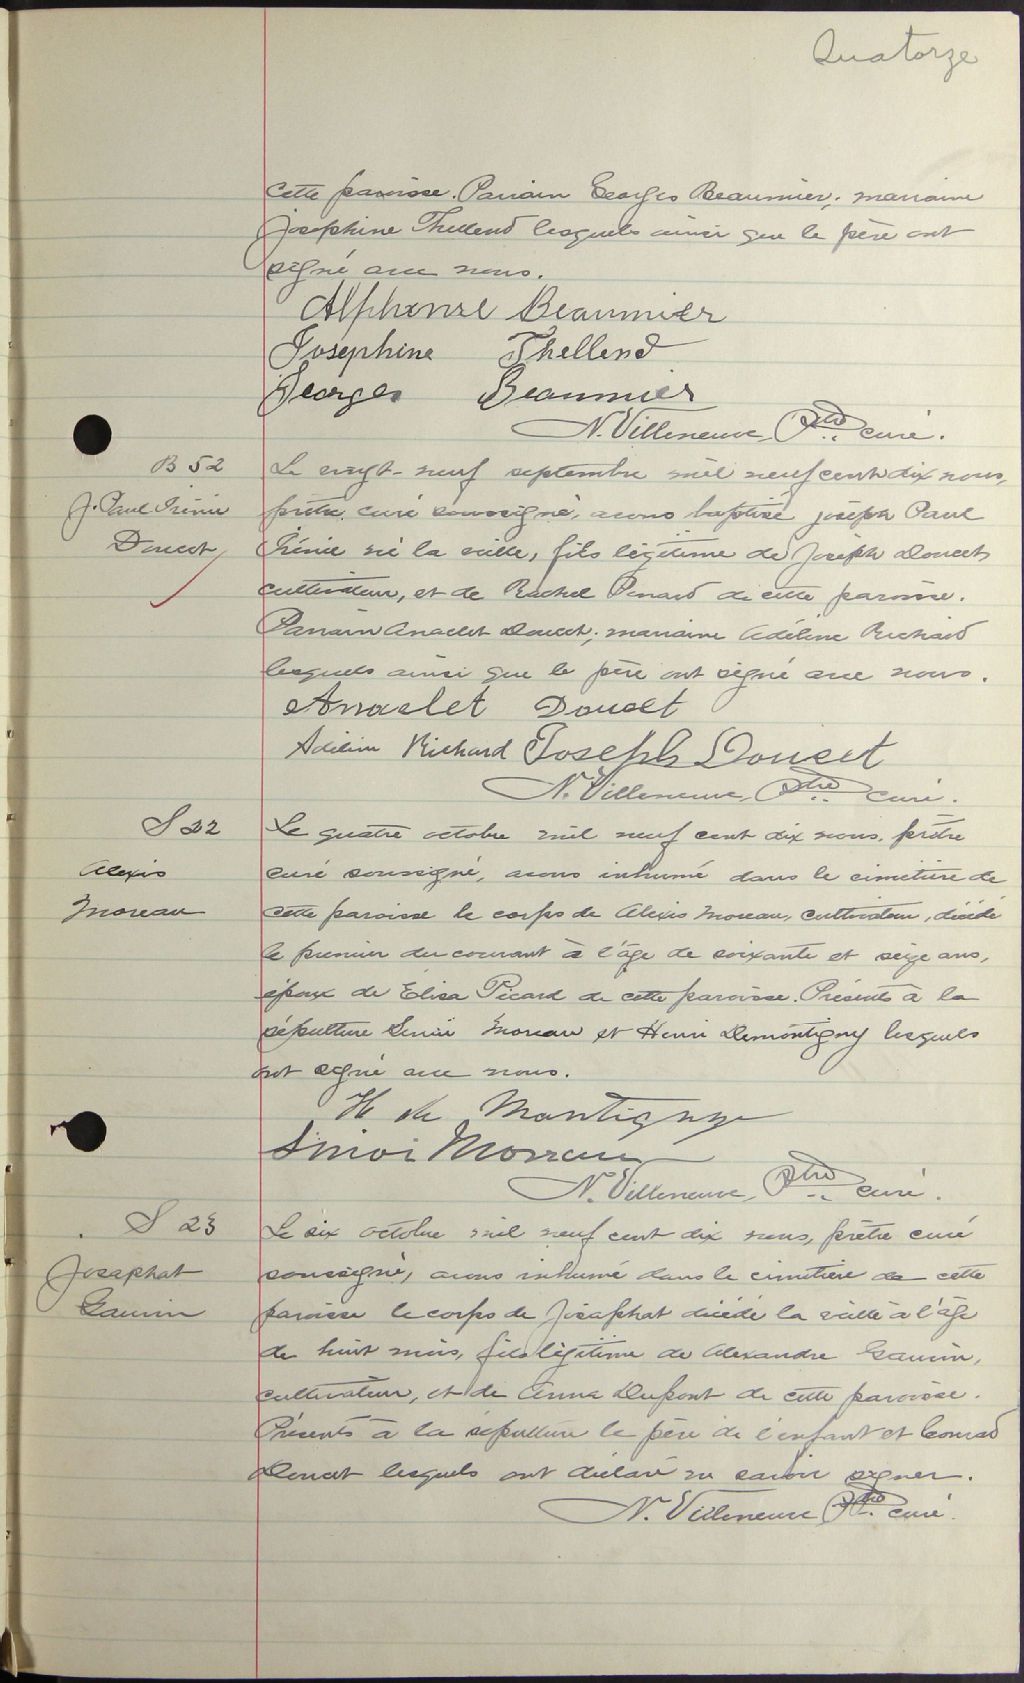 Quatorze
cette paroisse. Parrain Georges Beaumier; marraine
Josephine Thellend lesquels ainsi que le père ont
signé avec nous.
Alphonse Beaumier
Josephine Thellend
Georges Beaumier
N. Villeneuve, Ptre curé.
B 52
J. Paul Irénée
Doucet
Le vingt-neuf septembre mil neuf cent dix nous,
prêtre curé soussigné, avons baptisé joseph Paul
Irénée né la veille, fils légitime de Joseph Doucet
cultivateur, et de Rachel Penard de cette paroisse.
Parrain Anaclet Doucet; marraine Adéline Richard
lesquels ainsi que le père ont signé avec nous.
Anaclet Doucet
Adéline Richard Joseph Doucet
N. Villeneuve, Ptre curé.
S 22
Alexis
Moreau
Le quatre octobre mil neuf cent dix nous, prêtre
curé soussigné, avons inhumé dans le cimetière de
cette paroisse le corps de Alexis Moreau, cultivateur, décédé
le premier du courant à l'âge de soixante et seize ans,
époux de Elisa Picard de cette paroisse. Présents à la
sépulture Moreau et Henri Demontigny lesquels
ont signé avec nous.
H de Montigny
Moreau
N. Villeneuve, Ptre curé.
S 23
Josaphat
Gauvin
Le six octobre mil neuf cent dix nous, prêtre curé
soussigné, avons inhumé dans le cimetière de cette
paroisse le corps de Josaphat décédé la veille à l'âge
de huit mois, fils légitime de Alexandre Gauvin,
cultivateur, et de Anna Dupont de cette paroisse.
Présents à la sépulture le père de l'enfant et Conrad
Doucet lesquels ont déclaré ne savoir signer.
N. Villeneuve Ptre curé.